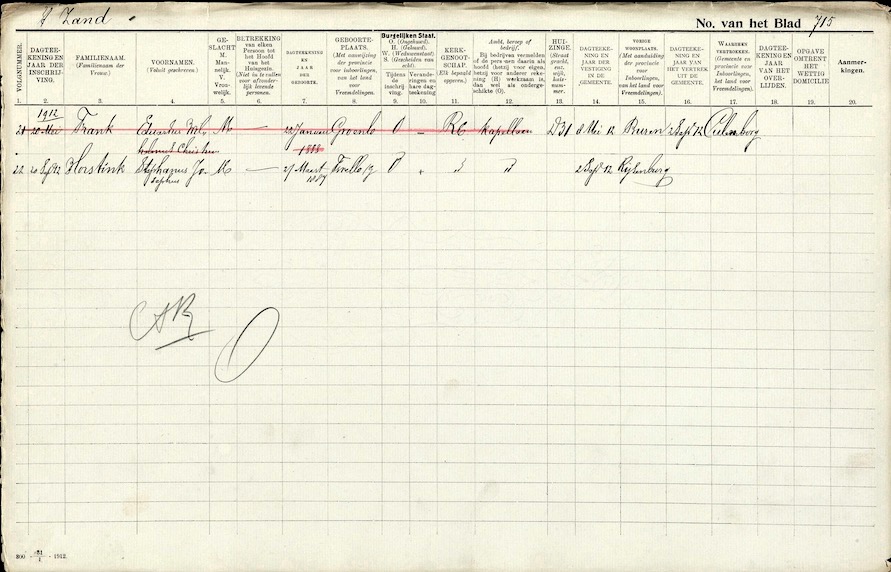 't Zand.
No. van het Blad 715
VOLGNUMMER.
1.
DAGTEE-
KENING EN
JAAR DER
INSCHRIJ-
VING.
2.
FAMILIENAAM.
(Familienaam der
Vrouw.)
3.
VOORNAMEN.
(Voluit geschreven.)
4.
GE-
SLACHT
M.
Man-
nelijk.
V.
Vrou-
welijk.
5.
BETREKKING
van elken
Persoon tot
het Hoofd
van het
Huisgezin.
(Niet in te vullen
voor afzonder-
lijk levende
personen.
6.
DAGTEEKENING
EN
JAAR
DER
GEBOORTE.
7.
GEBOORTE-
PLAATS.
(Met aanwijzing
der provincie
voor inboorlingen,
van het land
voor
Vreemdelingen.
8.
Burgelijken Staat.
O. (Ongehuwd).
H. (Gehuwd).
W. (Weduwenstaat)
S. (Gescheiden van
echt).
Tijdens
de
inschrij
ving.
9.
Verande-
ringen en
hare dag-
teekening
10.
KERK-
GENOOT-
SCHAP.
(Elk bepaald
opgeven.)
11.
Ambt, beroep of
bedrijf.
Bij bedrijven vermelden
of de personen daarin als
hoofd (hetzij voor eigen,
hetzij voor anderer reke-
ning (H) werkzaam is,
dan wel als onderge-
schikte (O).
12.
HUI-
ZINGE.
(Straat
gracht,
enz.
wijk,
huis-
num-
mer.
13.
DAGTEEKE-
NING EN
JAAR VAN
DE
VESTIGING
IN DE
GEMEENTE.
14.
VORIGE
WOONPLAATS.
(Met aanduiding
der provincie
voor
Inboorlingen,
van het land voor
Vreemdelingen.
15.
DAGTEEKE-
NING EN
JAAR VAN
HET VERTREK
UIT DE
GEMEENTE.
16.
WAARHEEN
VERTROKKEN.
(Gemeente en
provincie voor
Inboorlingen,
het land voor
Vreemdelingen).
17.
DAGTEE-
KENING EN
JAAR
VAN HET
OVER-
LIJDEN.
18.
OPGAVE
OMTRENT
HET
WETTIG
DOMICILIE
19.
Aanmer-
kingen.
20.
1912
21 20 Mei Frank M. — 22 Januari Groenlo O — RC Kapellaan D31 8 Mei 12 Buren 2 Sept 12 Culenborg
1888
22 20 Sept 12 Horstink Stephanus Jo- M. — 27 Maart Twello O
sephus 2 Sept 12 Rijsenburg
AR
O
800 - 1912